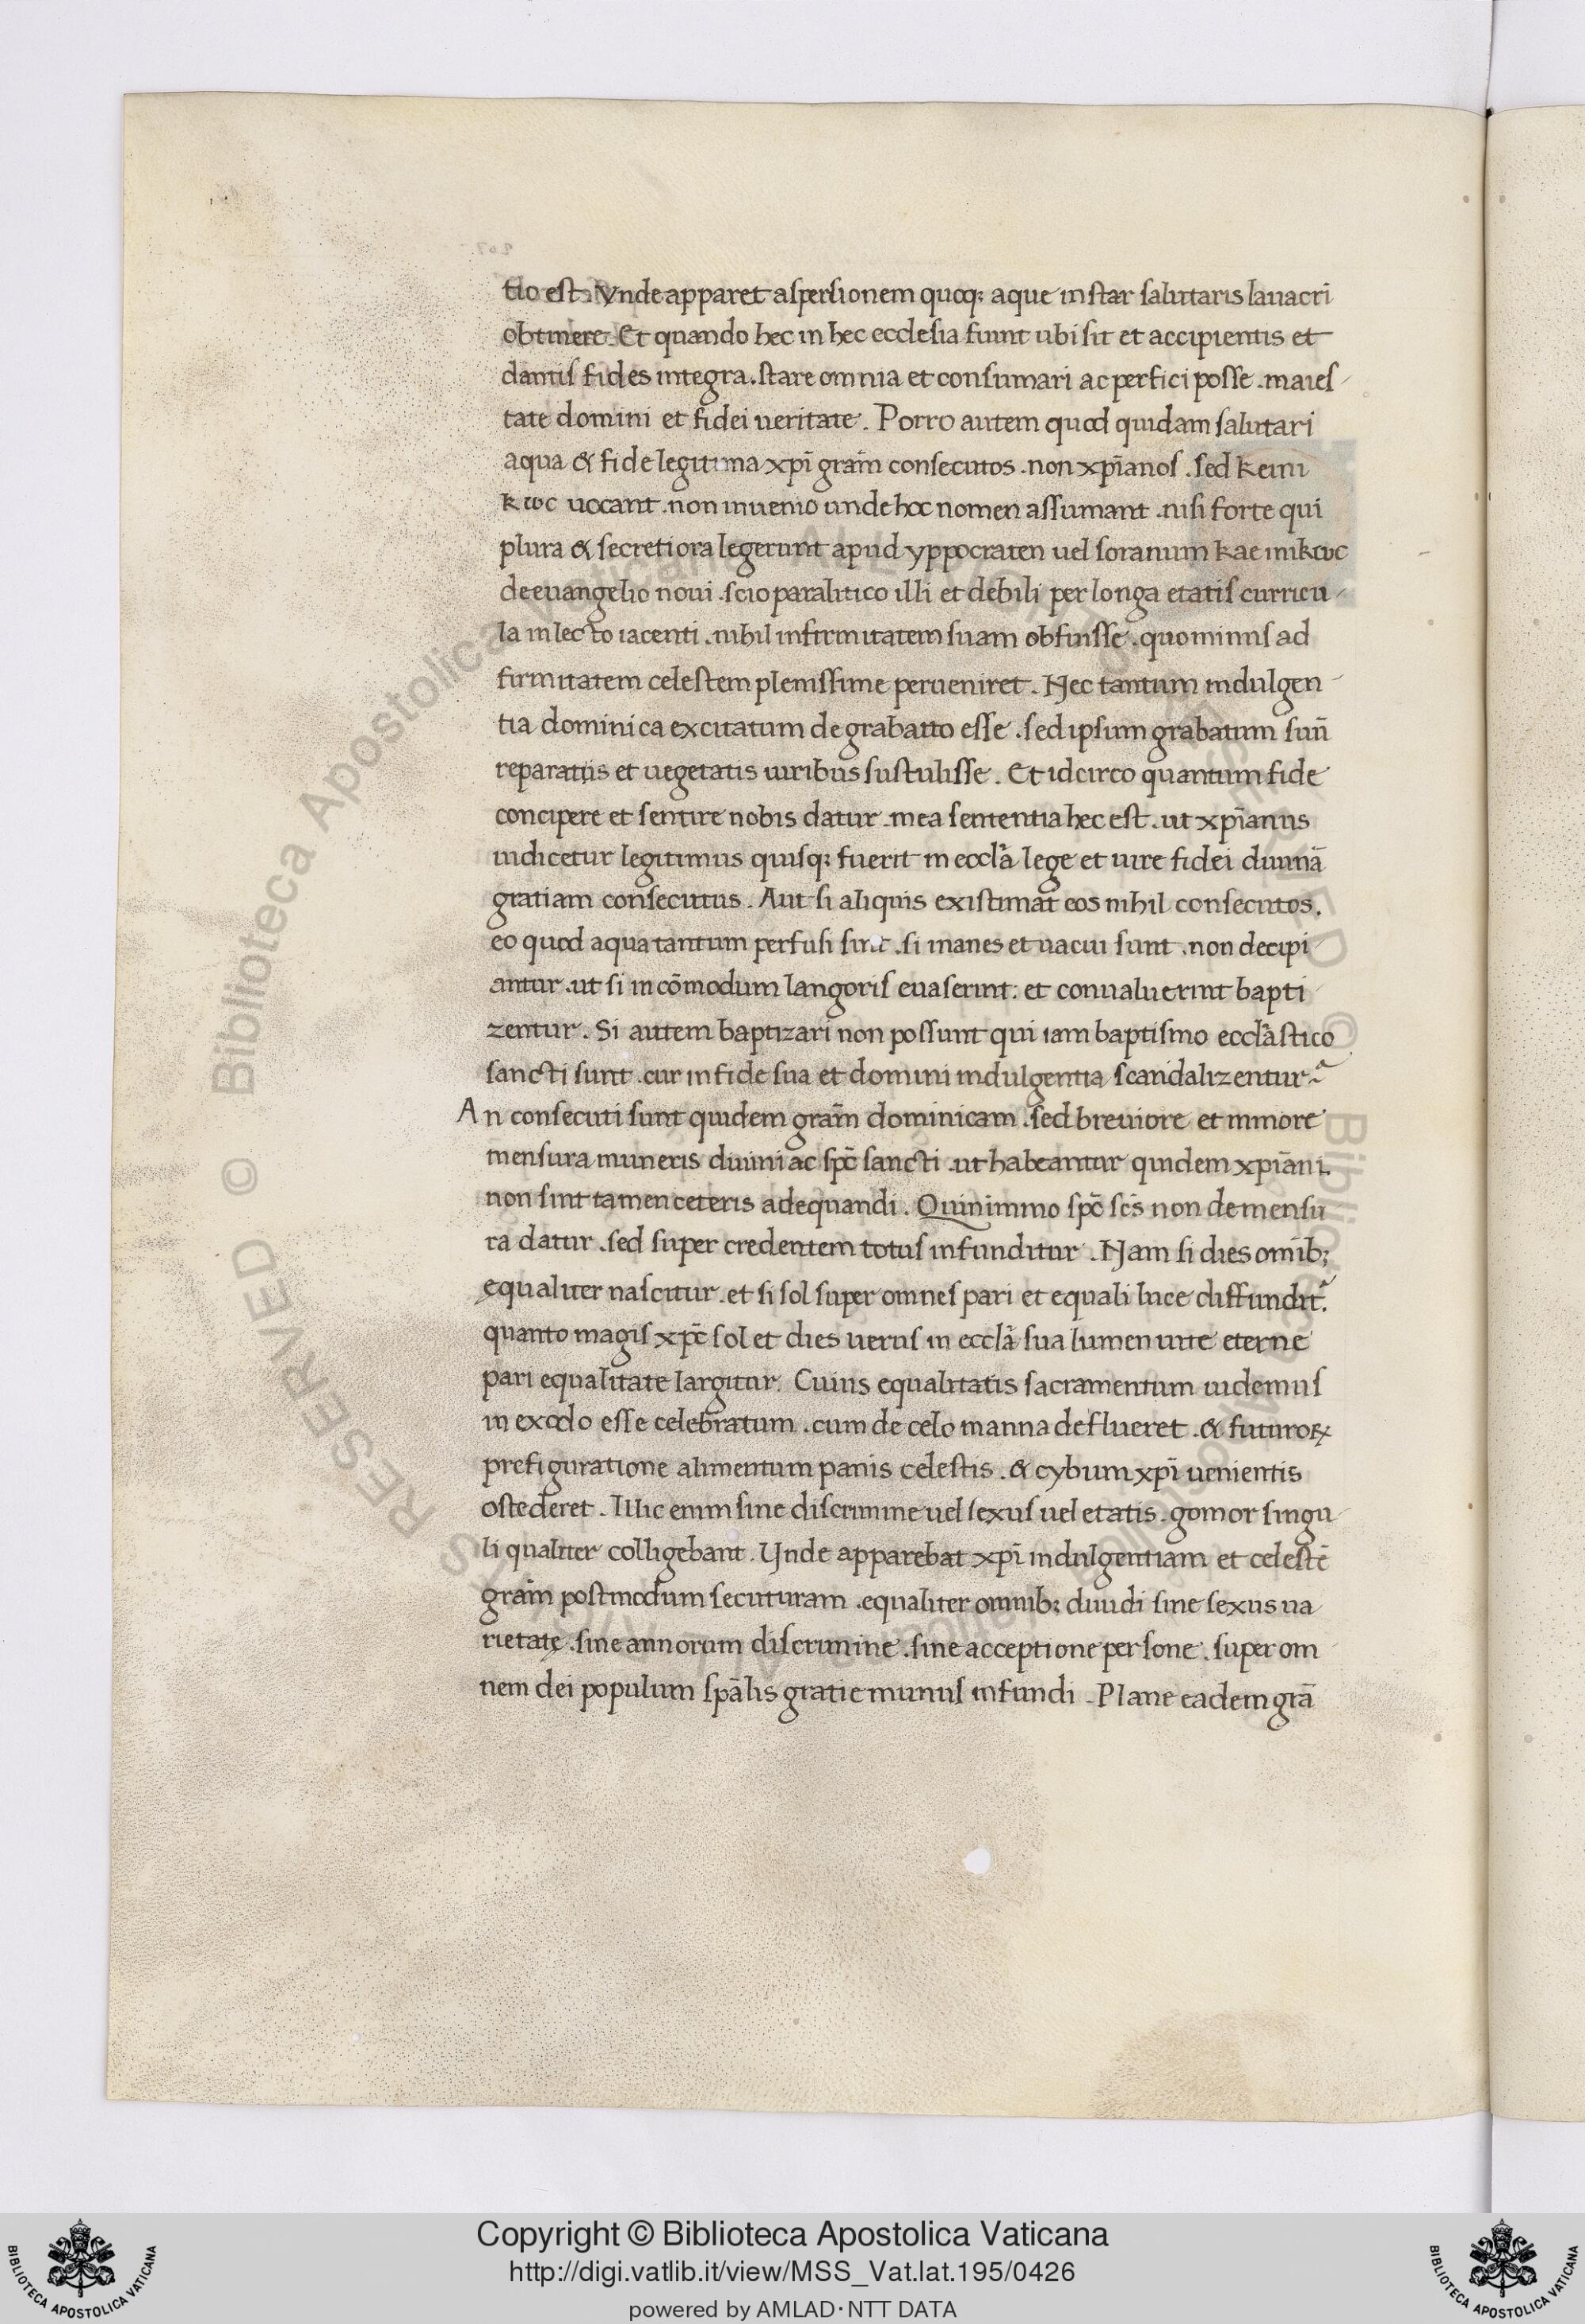 tio est. Vnde apparet aspersionem quoq; aque instar salutaris lauacri
obtinere. Et quando hec in hec ecclesia fiunt ubi sit et accipientis et
dantis fides integra. stare omnia et consumari ac perfici posse. maies-
tate domini et fidei ueritate. Porro autem quod quidam salutari
aqua & fide legitima xp̄i gram̄ consecutos. non xp̄ianos. sed keini
kωc uocant. non inuenio unde hoc nomen assumant. nisi forte qui
plura & secretiora legerunt apud yppocraten uel soranum kae inikωc
de euangelio noui. scio paralitico illi et debili per longa etatis curricu-
la in lecto iacenti. nihil infirmitatem suam obfuisse. quominus ad
firmitatem celestem plenissime perueniret. Nec tantum indulgen-
tia dominica excitatum de grabatto esse. sed ipsum grabatum suū
reparatiis et uegetatis uiribus sustulisse. Et idcirco quantum fide
concipere et sentire nobis datur. mea sententia hec est. ut xp̄ianus
iudicetur legitimus quisq; fuerit in eccla̅ lege et iure fidei diuinā
gratiam consecutus. Aut si aliquis existimat eos nihil consecutos.
eo quod aqua tantum perfusi sint. si inanes et uacui sunt. non decipi-
antur. ut si incōmodum langoris euaserint: et conualuerint bapti-
zentur. Si autem baptizari non possunt qui iam baptismo eccla̅stico
sancti sunt. cur in fide sua et domini indulgentia scandalizentur?
An consecuti sunt quidem gram̄ dominicam. sed breuiore et minore
mensura muneris diuini ac sp̄c sancti. ut habeantur quidem xp̄iani.
non sint tamen ceteris adequandi. Quinimmo sp̄c sc̄s non de mensu
ra datur. sed super credentem totus infunditur. Nam si dies omīb;
equaliter nascitur. et si sol super omnes pari et equali luce diffundit᷑.
quanto magis xp̄c sol et dies uerus in eccla̅ sua lumen uite eterne
pari equalitate largitur. Cuius equalitatis sacramentum uidemus
in exodo esse celebratum. cum de celo manna deflueret. & futuroꝝ
prefiguratione alimentum panis celestis. & cybum xp̄i uenientis
ostederet. Illic enim sine discrimine uel sexus uel etatis. gomor singu-
li qualiter colligebant. Unde apparebat xp̄i indulgentiam et celestē
gram̄ postmodum secuturam. equaliter omnib; diuidi sine sexus ua-
rietate. sine annorum discrimine. sine acceptione persone. super om-
nem dei populum sp̄alis gratie munus infundi. Plane eadem grā
Copyright © Biblioteca Apostolica Vaticana
http://digi.vatlib.it/view/MSS_Vat.lat.195/0426
powered by AMLAD·NTT DATA